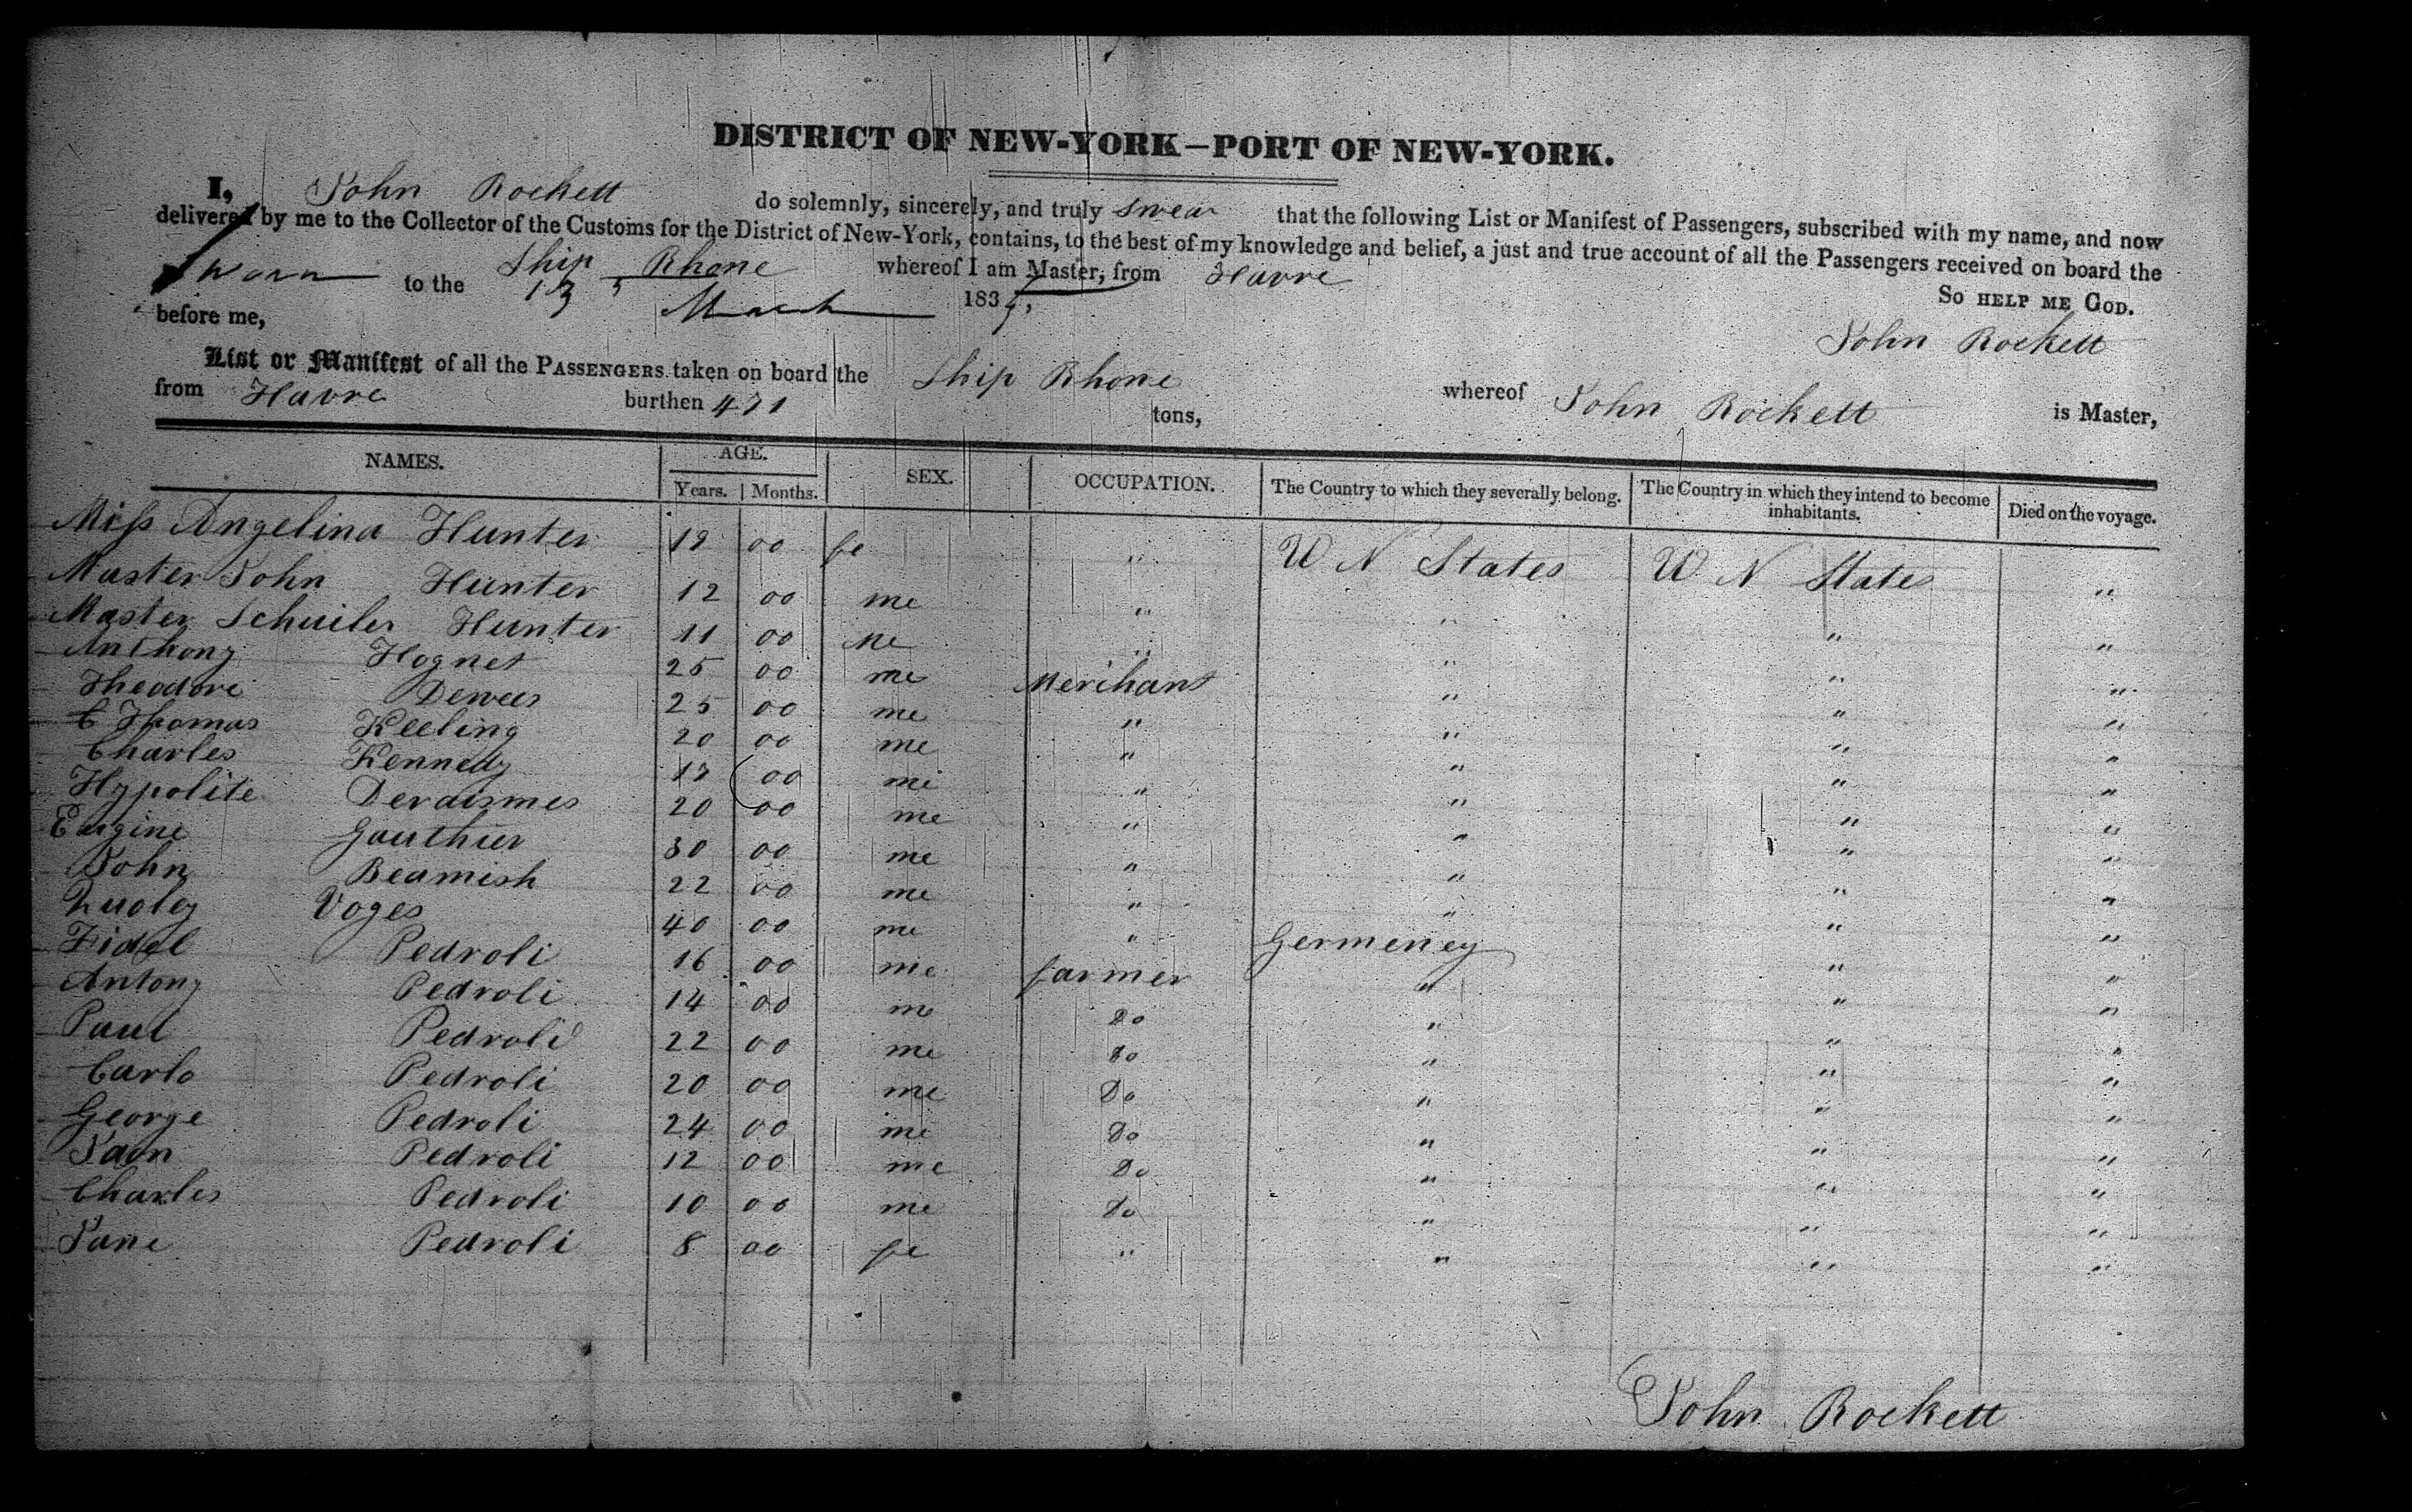 DISTRICT OF NEW-YORK—PORT OF NEW-YORK.
I, John Rockett do solemnly, sincerely, and truly swear that the following List or Manifest of Passengers, subscribed with my name, and now
delivered by me to the Collector of the Customs for the District of New-York, contains, to the best of my knowledge and belief, a just and true account of all the Passengers received on board the
Ship Rhone whereof I am Master, from Havre
Sworn to the 13 March 183
So HELP ME GOD.
before me,
John Rockett
List or Manifest of all the PASSENGERS taken on board the Ship Rhone whereof John Rockett is Master,
from Havre burthen 471 tons,
NAMES. AGE. SEX. OCCUPATION. The Country to which they severally belong. The Country in which they intend to become inhabitants. Died on the voyage.
Years. Months.
Miss Angelina Hunter 19 00 fe " U N States U N States "
Master John Hunter 12 00 me " " " "
Master Schuiler Hunter 11 00 me " " " "
Anthony Hognet 25 00 me Merchant " " "
Theodore Dewees 25 00 me " " " "
C Thomas Keeling 20 00 me " " " "
Charles Kennedy 00 me " " " "
Hypolite Deraismes 20 00 me " " " "
Eugine Gauthier 30 00 me " " " "
John Beamish 22 00 me " " " "
Voges 40 00 me " Germeney " "
Fidel Pedroli 16 00 me farmer " " "
Antony Pedroli 14 00 me Do " " "
Paul Pedroli 22 00 me do " " "
Carlo Pedroli 20 00 me Do " " "
George Pedroli 24 00 me Do " " "
Pedroli 12 00 me Do " " "
Charles Pedroli 10 00 me Do " " "
Jane Pedroli 8 00 fe " " " "
John Rockett